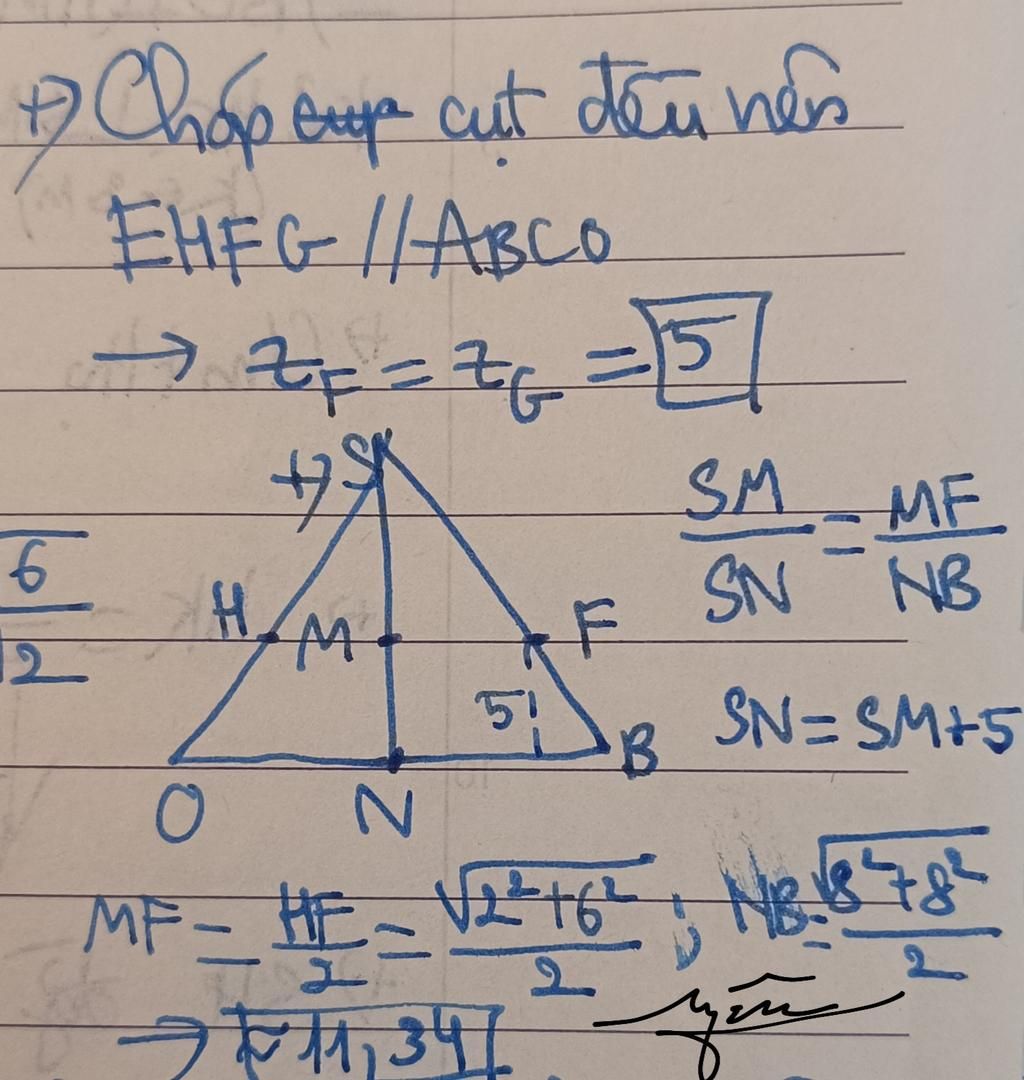 +) Chóp cụt đều nên
EHFG // ABCO
→ z_F = z_G = 5
+) S
SM/SN = MF/NB
√6/2
H M F
5
SN = SM+5
B
O N
MF = HF/2 = √(2²+6²)/2 ; NB = √(8²+8²)/2
→ ≈ 11,34
yến